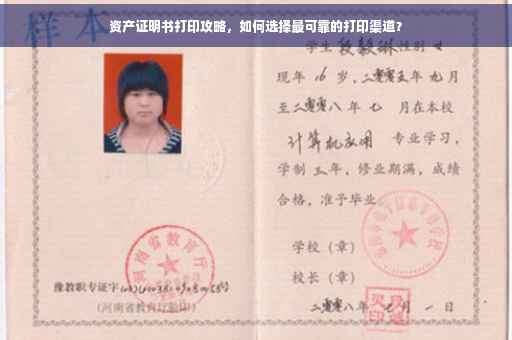 资产证明书打印攻略，如何选择最可靠的打印渠道？
样本
学生段毅琳性别女
现年16岁，二零零五年九月
至二零零八年七月在本校
计算机应用专业学习，
学制三年，修业期满，成绩
合格，准予毕业。
学校（章）
校长（章）
二零零八年 月一日
河南省教育厅
豫教职专证字
（河南省教育厅验印）